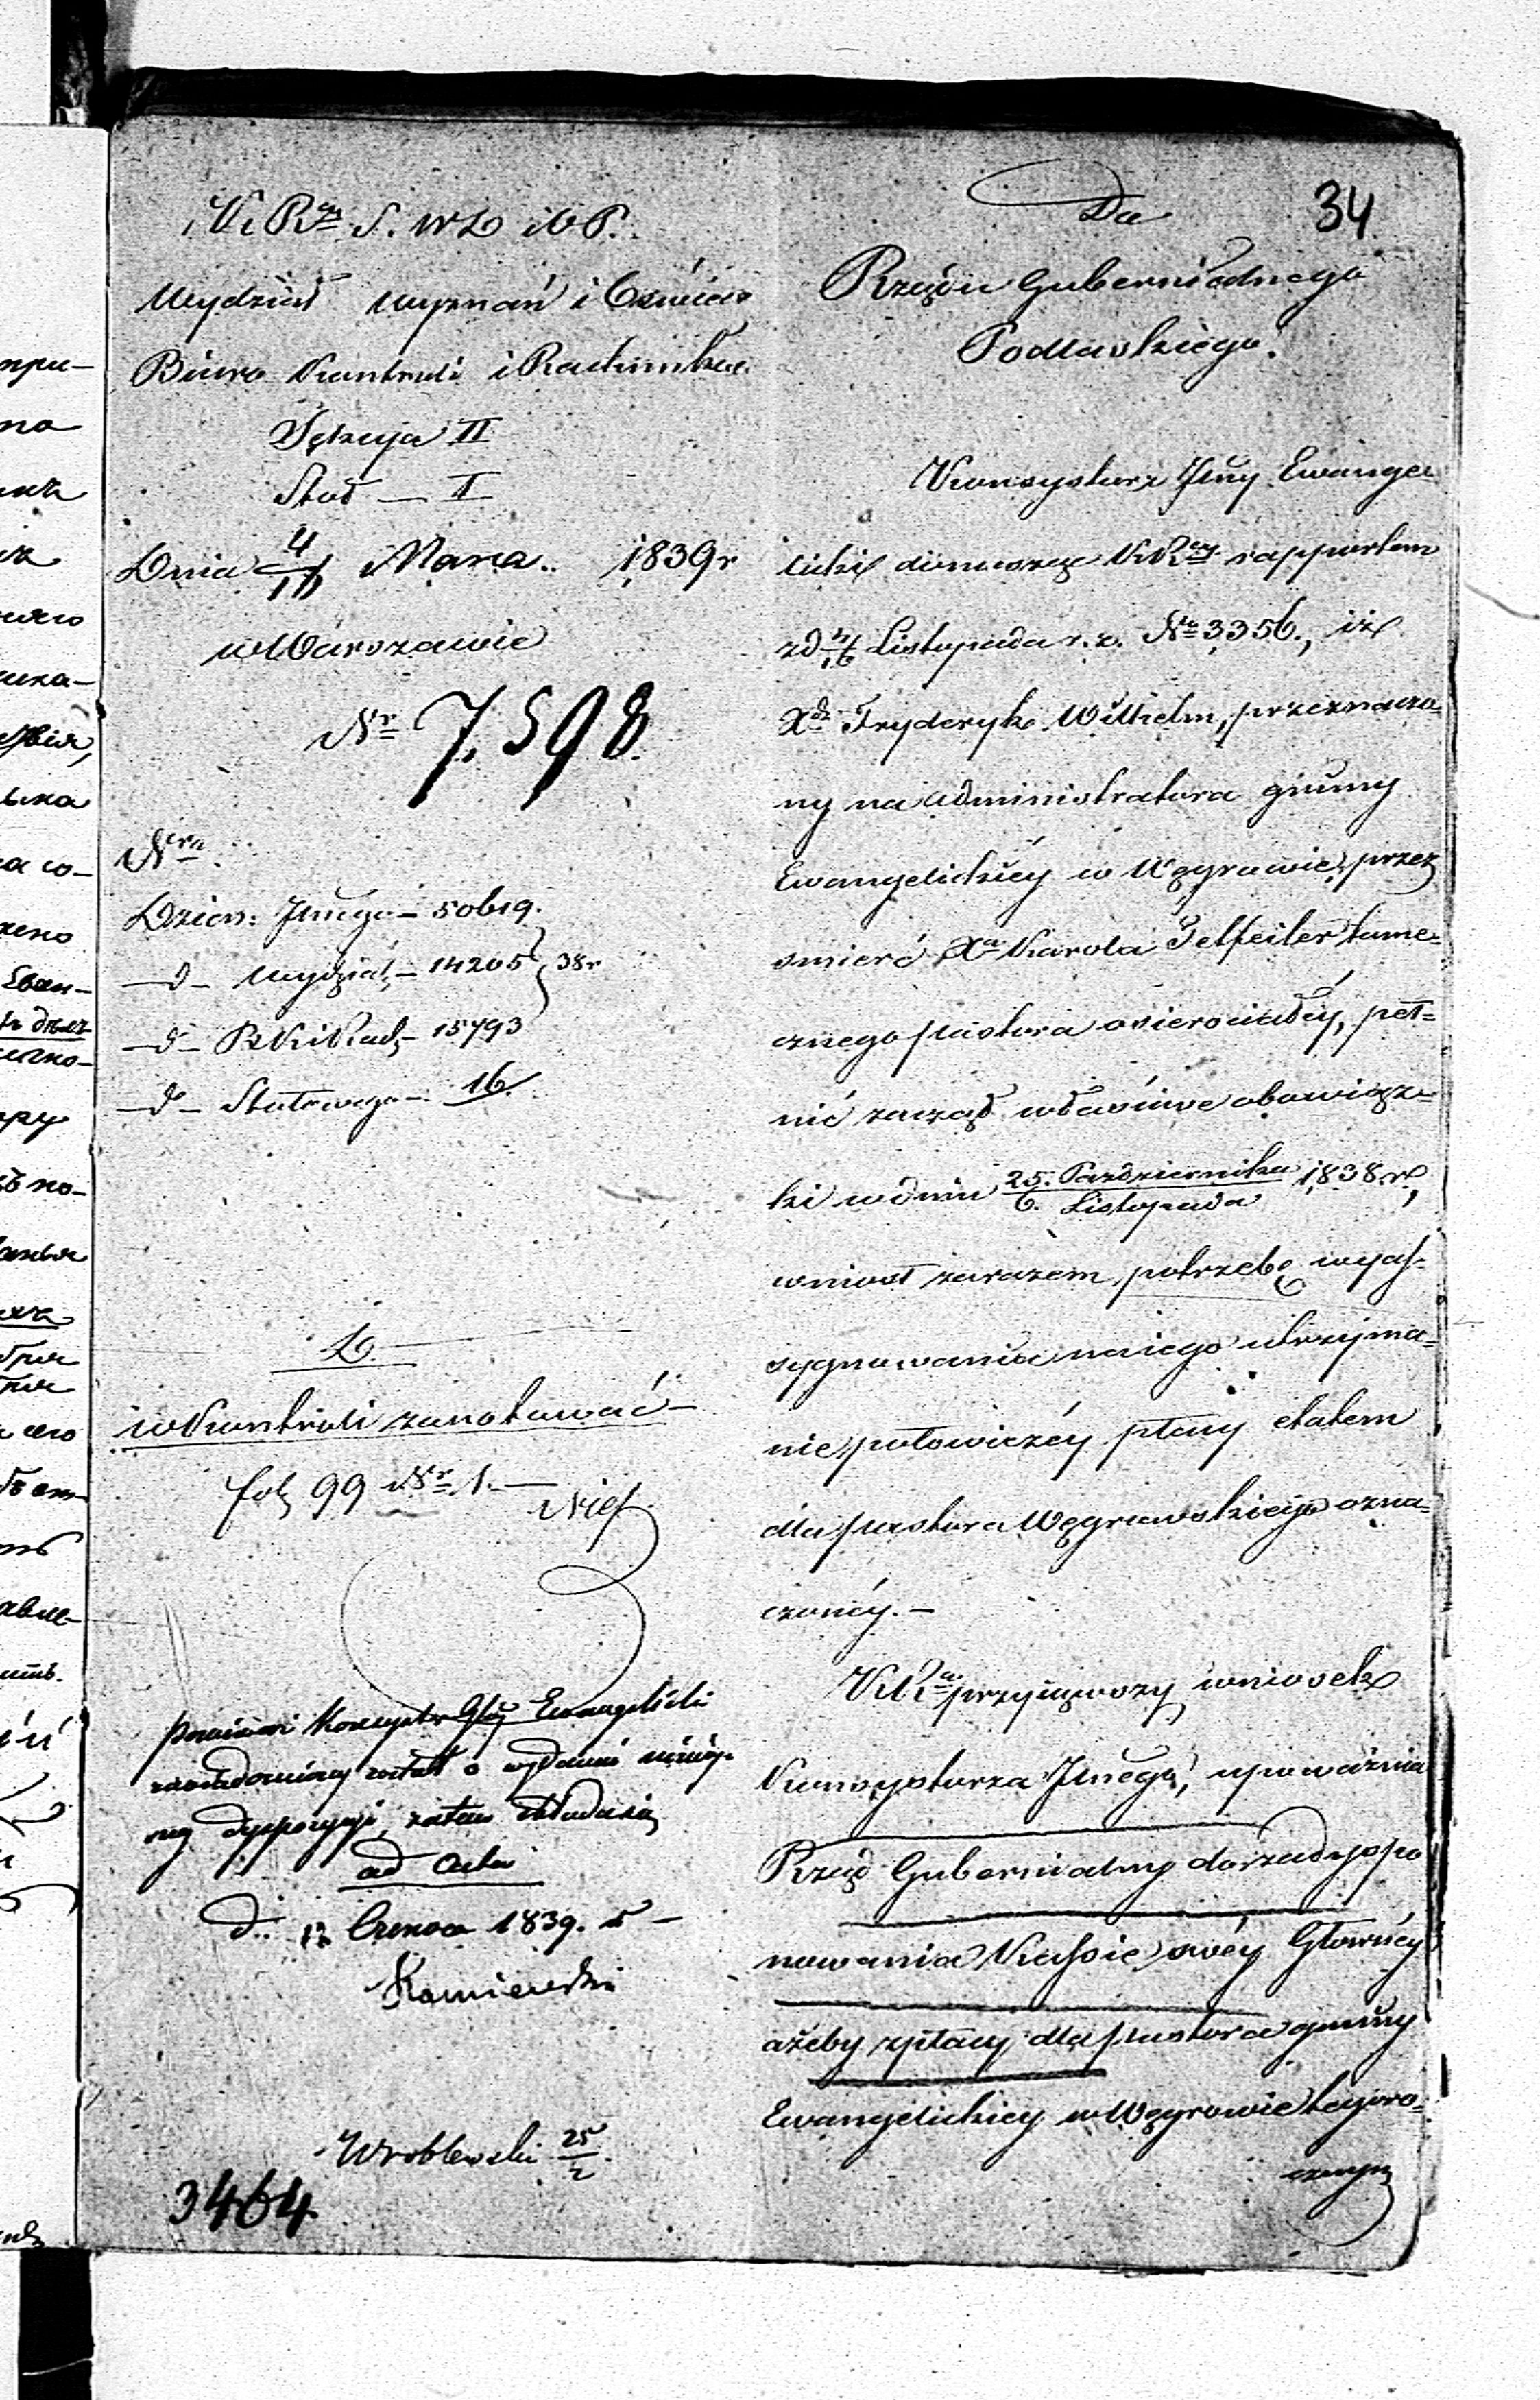 34
K. R. S. W. D. i O. P.
Wydział Wyznań i Oświec
Biuro Kontroli i Rachunkow
Sekcyja II
Stół — I
Dnia 4/16 Marca 1839 r
w Warszawie
Nr 7,598
Nra
Dzien: Jlnego — 50619.
— d — Wydział, — 14205 } 38 r
— d — B K i Rach, — 15793
— d — Stołowego — 16.
D.
w Kontroli zanotować —
fol, 99 Nr 1. —
Ponieważ Konsystorz Jlny Ewangelicki
zawiadomiony został o wydaniu niniéj-
széj dyspozycyi, zatem składa się
ad acta
d. 12 Czerwca 1839. r —
Kamieński
Wroblewski 25/2
3464
Do
Rządu Gubernialnego
Podlaskiego.
Konsystorz Jlny Ewange-
licki donosząc K. R. rapportem
z d 4/16 Listopada r. z. Nr 3356., iż
Xdz Fryderyk Wilhelm, przeznaczo-
ny na Administratora gminy
Ewangelickiéy w Węgrowie, przez
śmierć Xa Karola Telfeiler tame-
cznego pastora osierociałéy, peł-
nić zaczął właściwe obowiąz-
ki w dniu 25. Października / 6. Listopada 1838 r,
wniosł zarazem potrzebę wyas-
sygnowania na iego utrzyma-
nie połowiczéy płacy etatem
dla pastora Węgrowskiego ozna-
czonéy. —
K. R. przyiąwszy wniosek
Konsystorza Jlnego, upoważnia
Rząd Gubernialny do zadyspo-
nowania Kassie swéy Głownéy
ażeby z płacy dla pastora gminy
Ewangelickiey w Węgrowie tegoro-
cznym